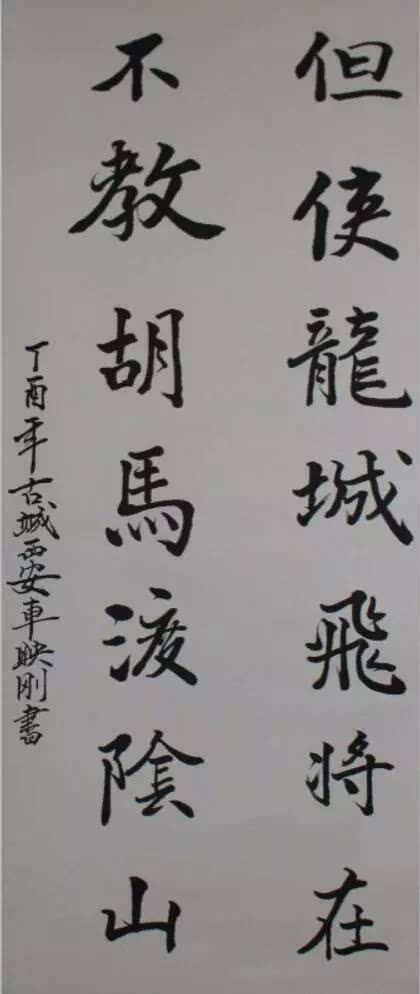 但使龍城飛將在
不教胡馬渡陰山
丁酉年古城西安車映刚書